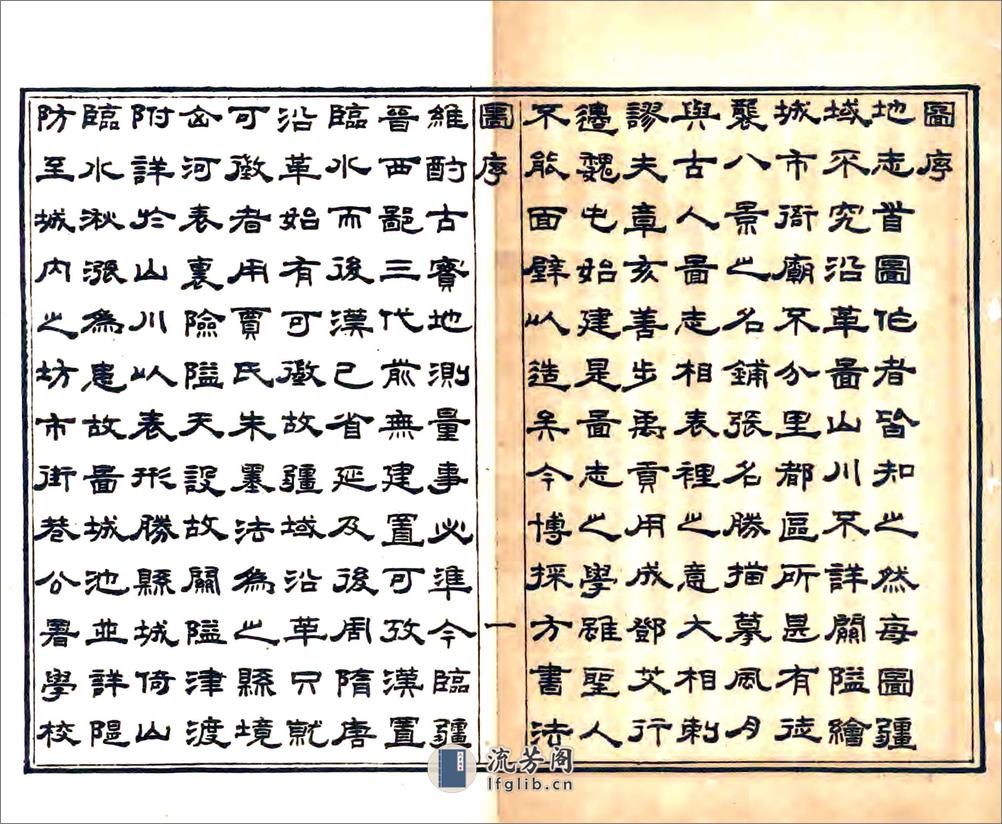 圖序
地志首圖作者皆知之然每圖疆
域不究沿革圖山川不詳關隘繪
城市衙廟不分里都區所甚有徒
襲八景之名鋪張名勝描摹風月
與古人圖志相表裡之意大相刺
謬夫章亥善步禹貢用成鄧艾行
邊魏屯始建是圖志之學雖聖人
不能面壁以造矣今博採方書法
圖序
一
維酌古實地測量事必準今臨疆
晉西鄙三代前無建置可攷漢置
臨水而後漢已省延及後周隋唐
沿革始有可徵故疆域沿革只就
可徵者用賈氏朱墨法為之縣境
山河表裏險隘天設故關隘津渡
附詳於山川以表形勝縣城倚山
臨水湫漲為患故圖城池並詳隄
防至城內之坊市街巷公署學校
流芳阁
lfglib.cn